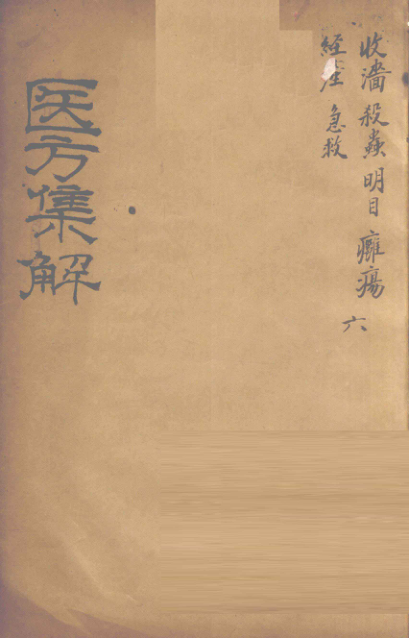 收濇 殺蟲 明目 癰瘍 六
經産 急救
医方集解